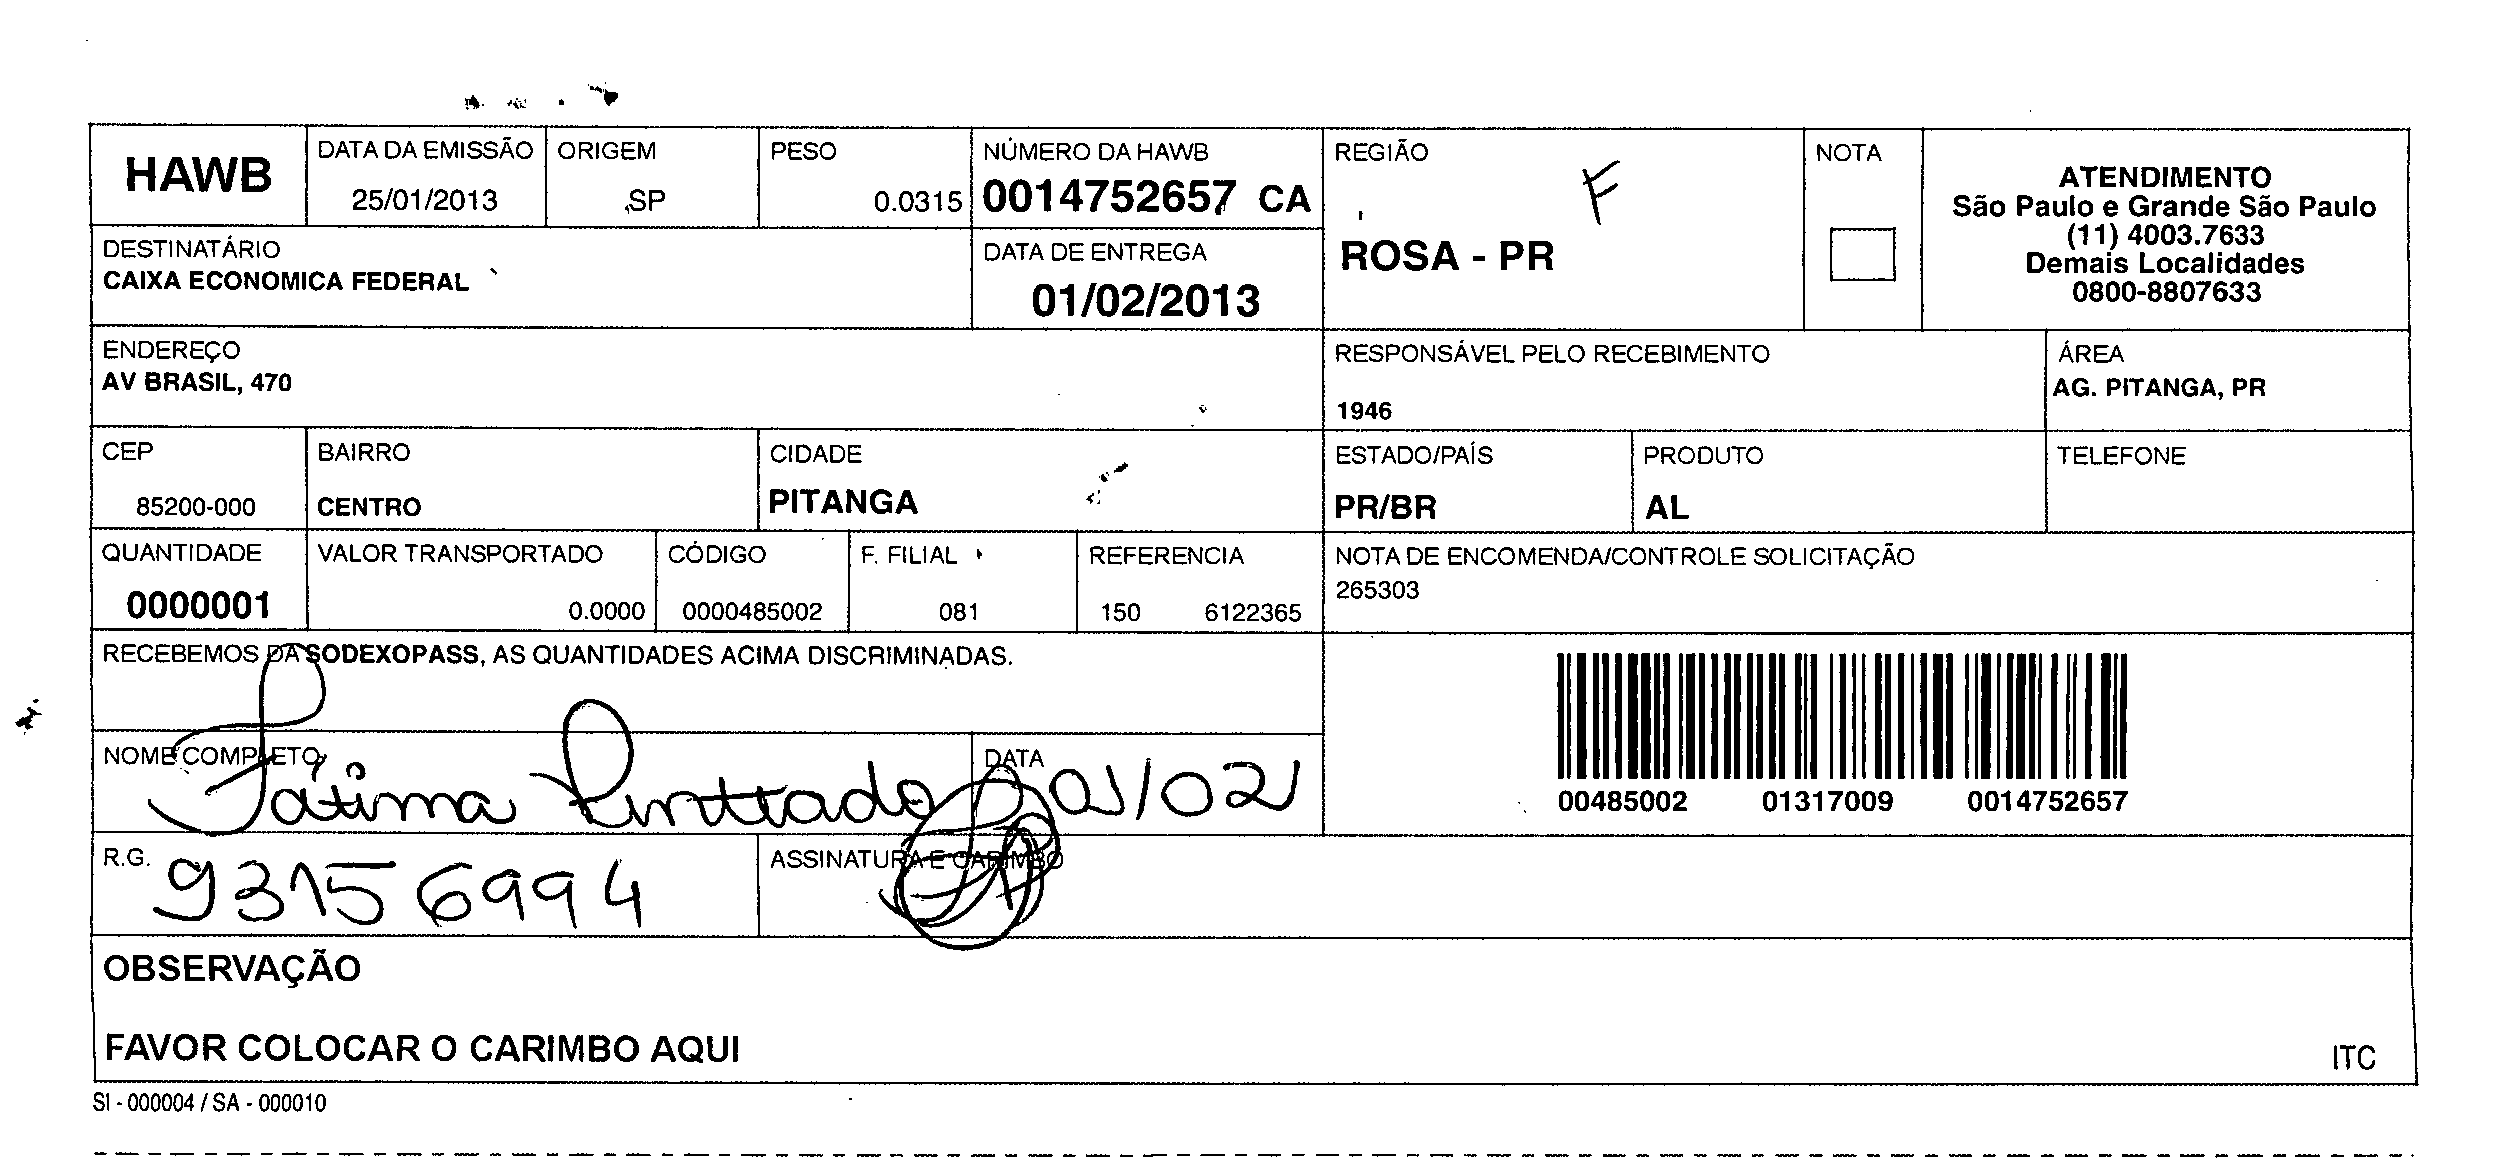 HAWB
DATA DA EMISSÃO
25/01/2013
ORIGEM
SP
PESO
0.0315
NÚMERO DA HAWB
0014752657 CA
REGIÃO
F
ROSA - PR
NOTA
ATENDIMENTO
São Paulo e Grande São Paulo
(11) 4003.7633
Demais Localidades
0800-8807633
DESTINATÁRIO
CAIXA ECONOMICA FEDERAL
DATA DE ENTREGA
01/02/2013
ENDEREÇO
AV BRASIL, 470
RESPONSÁVEL PELO RECEBIMENTO
1946
ÁREA
AG. PITANGA, PR
CEP
85200-000
BAIRRO
CENTRO
CIDADE
PITANGA
ESTADO/PAÍS
PR/BR
PRODUTO
AL
TELEFONE
QUANTIDADE
0000001
VALOR TRANSPORTADO
0.0000
CÓDIGO
0000485002
F. FILIAL
081
REFERENCIA
150 6122365
NOTA DE ENCOMENDA/CONTROLE SOLICITAÇÃO
265303
RECEBEMOS DA SODEXOPASS, AS QUANTIDADES ACIMA DISCRIMINADAS.
NOME COMPLETO
Fátima
DATA
01/02
00485002 01317009 0014752657
R.G.
93156994
ASSINATURA E CARIMBO
OBSERVAÇÃO
FAVOR COLOCAR O CARIMBO AQUI
ITC
SI - 000004 / SA - 000010